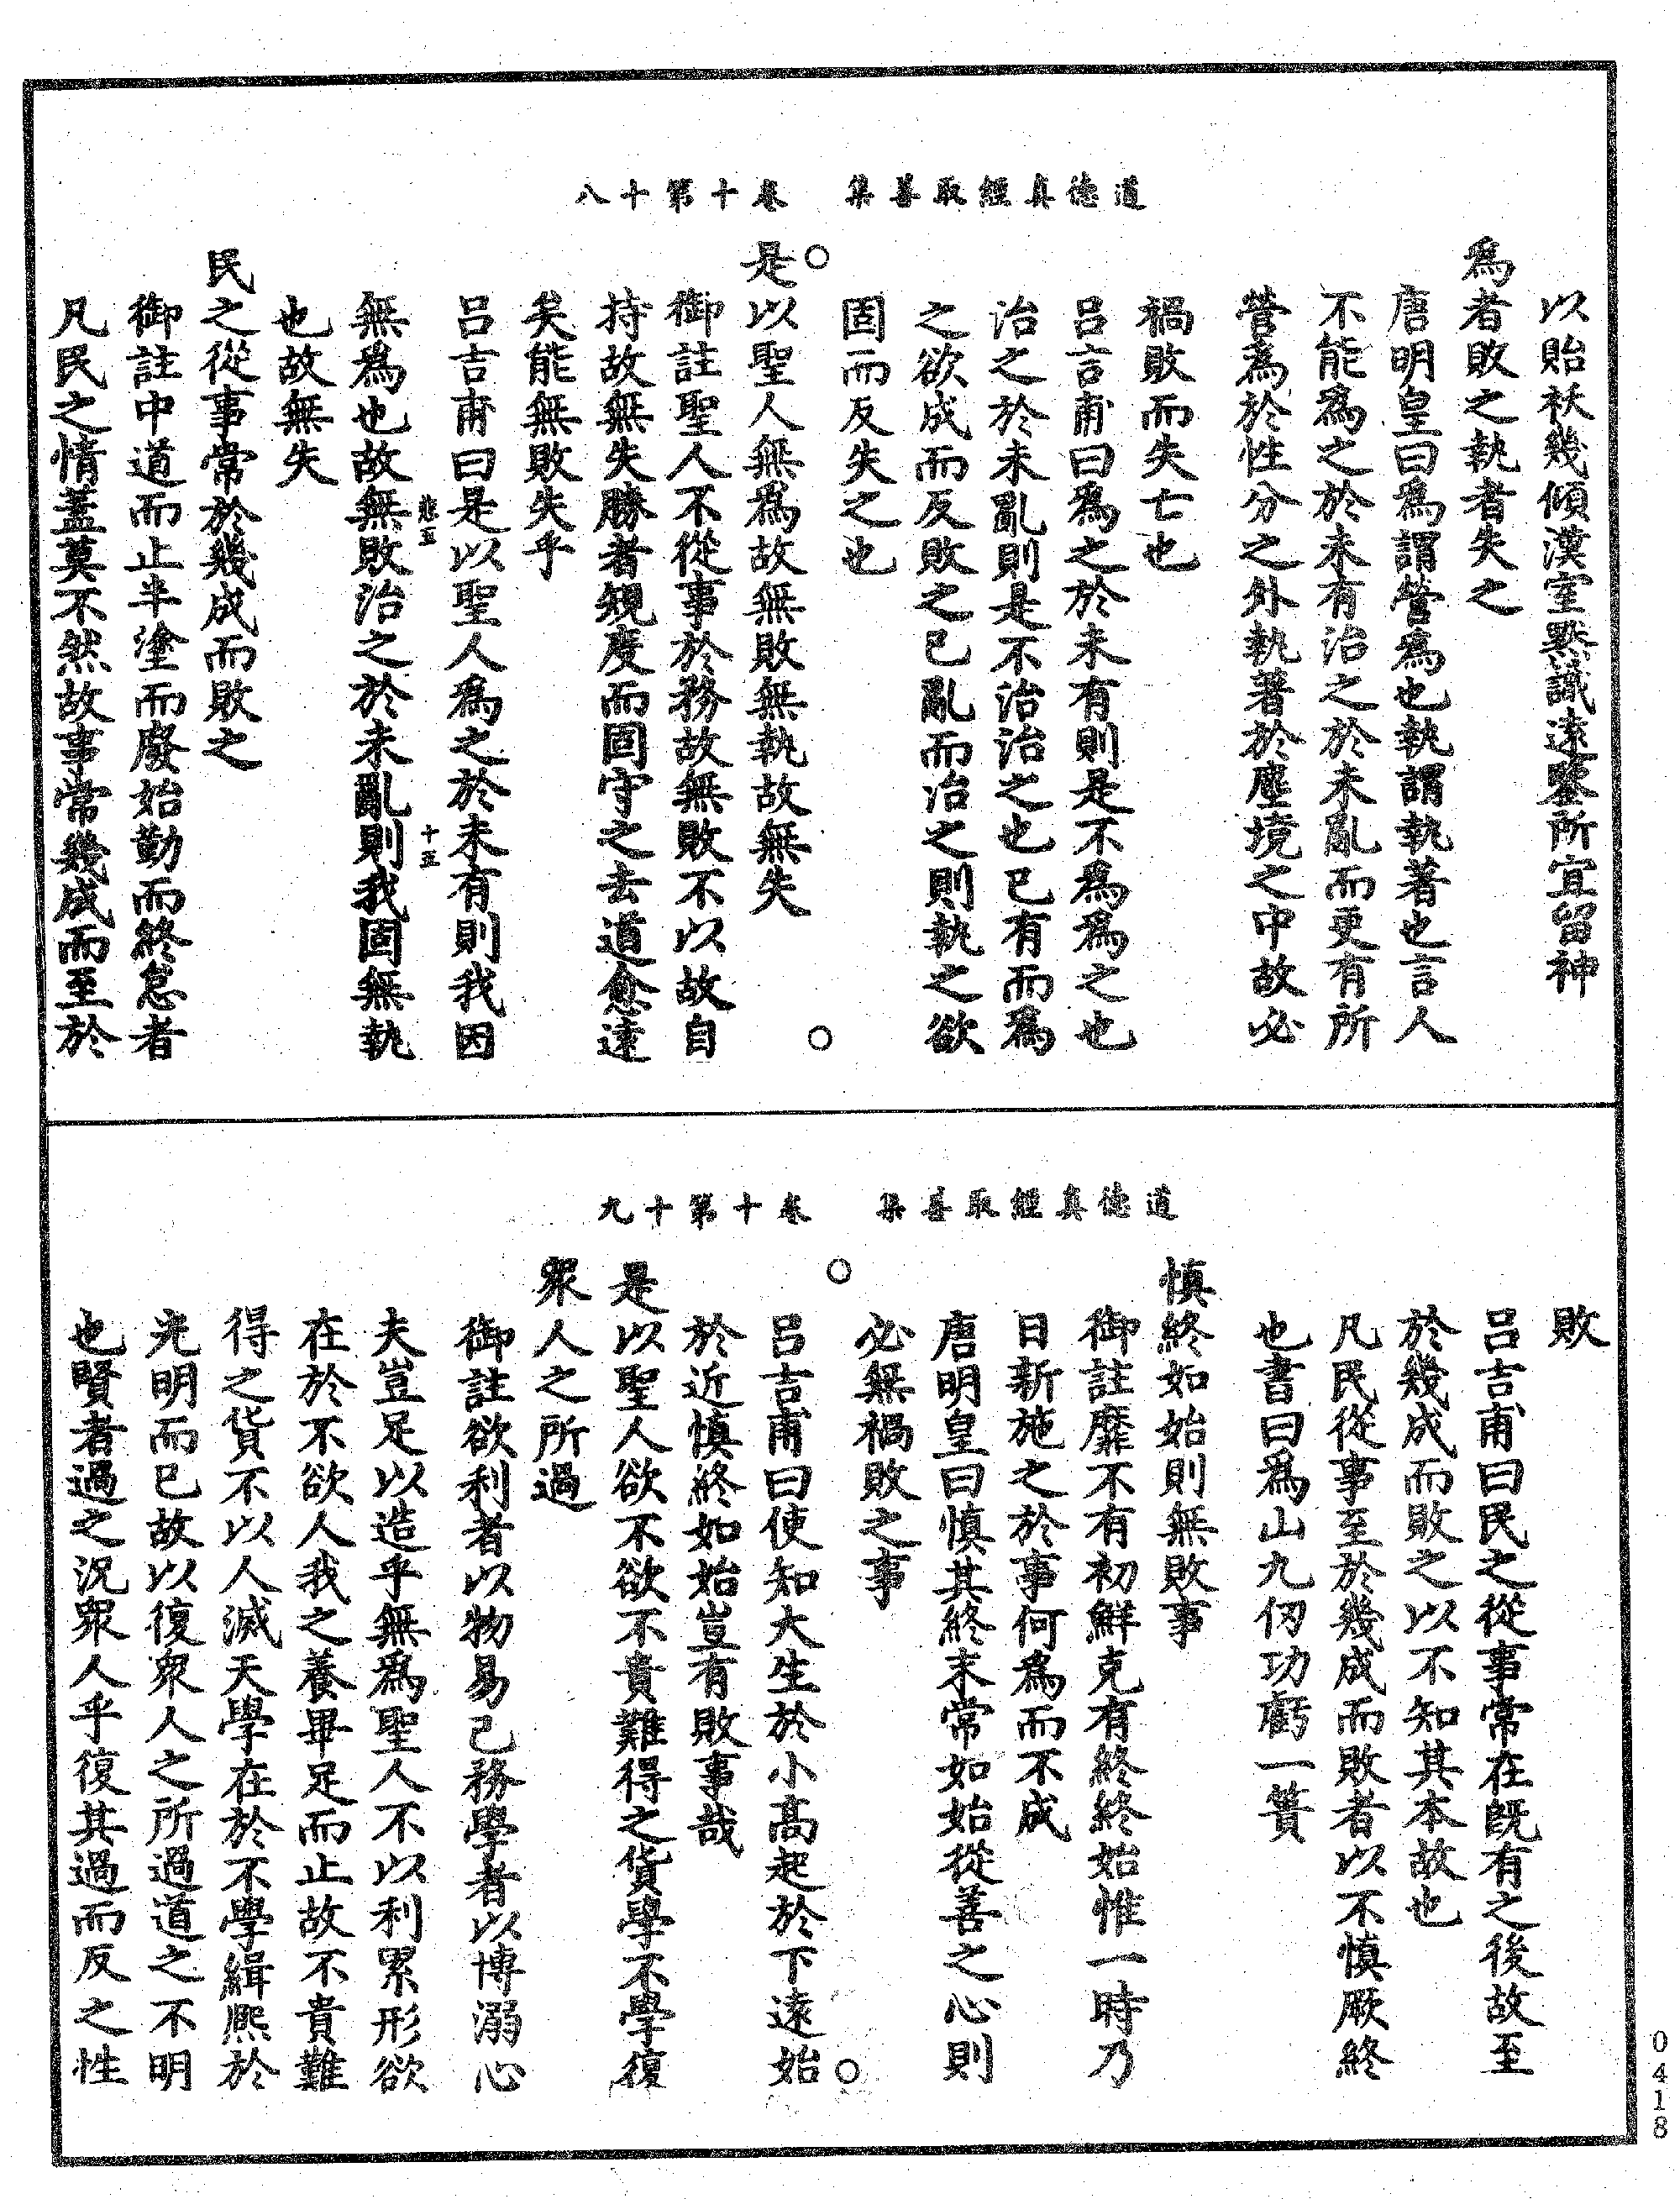 道德真經取善集　卷十第十八
以貽袄幾傾漢室默識遠鑒所宜留神
爲者敗之執者失之
唐明皇曰爲謂營爲也執謂執著也言人
不能爲之於未有治之於未亂而更有所
營為於性分之外執著於塵境之中故必
禍敗而失亡也
呂吉甫曰爲之於未有則是不爲爲之也
治之於未亂則是不治治之也已有而爲
之欲成而反敗之已亂而治之則執之欲
固而反失之也
是以聖人無爲故無敗無執故無失
御註聖人不從事於務故無敗不以故自
持故無失勝者規度而固守之去道愈遠
矣能無敗失乎
呂吉甫曰是以聖人爲之於未有則我因
無爲也故無敗治之於未亂則我固無執
十五
也故無失
民之從事常於幾成而敗之
御註中道而止半塗而廢始勤而終怠者
凡民之情蓋莫不然故事常幾成而至於
道德真經取善集　卷十第十九
敗
呂吉甫曰民之從事常在旣有之後故至
於幾成而敗之以不知其本故也
凡民從事至於幾成而敗者以不慎厥終
也書曰爲山九仞功虧一簣
慎終如始則無敗事
御註靡不有初鮮克有終終始惟一時乃
日新施之於事何爲而不成
唐明皇曰慎其終末常如始從善之心則
必無禍敗之事
呂吉甫曰使知大生於小高起於下遠始
於近慎終如始豈有敗事哉
是以聖人欲不欲不貴難得之貨學不學復
衆人之所過
御註欲利者以物易己務學者以博溺心
夫豈足以造乎無爲聖人不以利累形欲
在於不欲人我之養畢足而止故不貴難
得之貨不以人滅天學在於不學緝熙於
光明而已故以復衆人之所過道之不明
也賢者過之況衆人乎復其過而反之性
0418